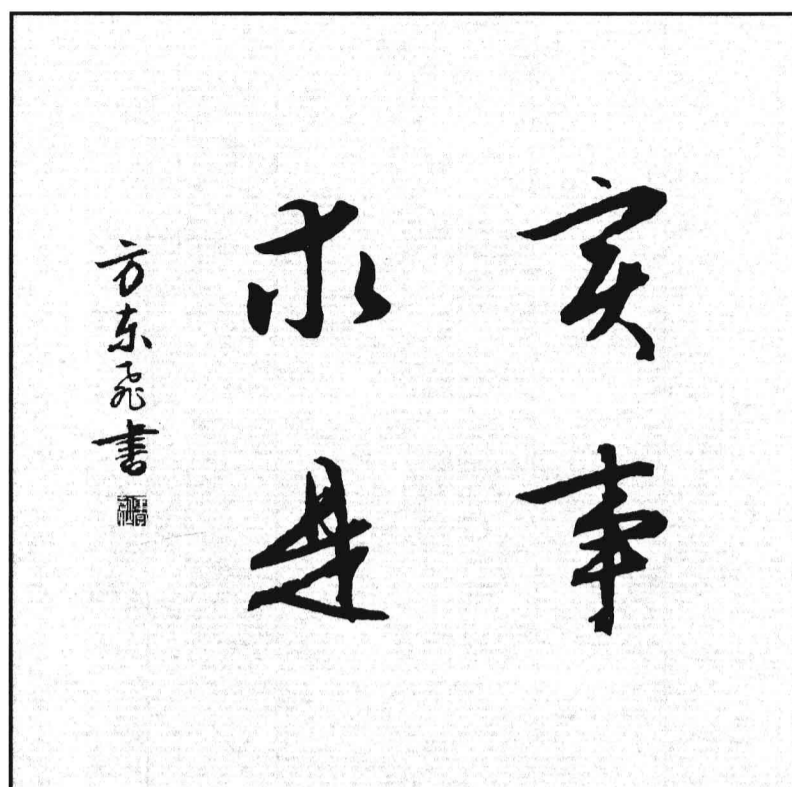 实事
求是
方东飞书